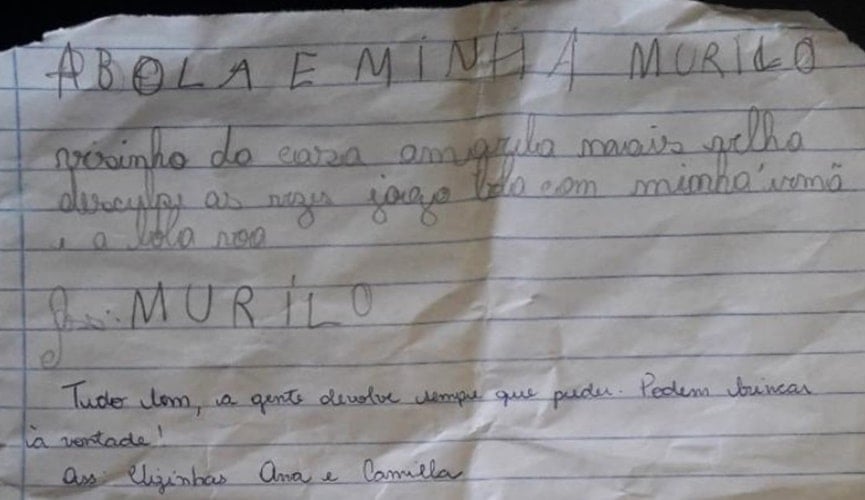 A BOLA E MINHA MURILO
visinho da casa amarela maais velha
desculpe as vezes jogo bola com minha irmã
e a bola voa
Ass: MURILO
Tudo bem, a gente devolve sempre que puder. Podem brincar
à vontade!
Ass: Vizinhas Ana e Camilla